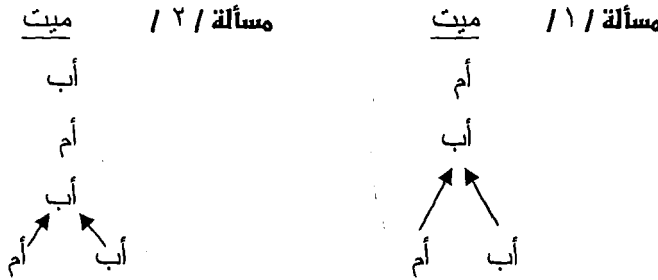 مسألة / ١ / ميت
أم
أب
أب أم
مسألة / ٢ / ميت
أب
أم
أب
أب أم